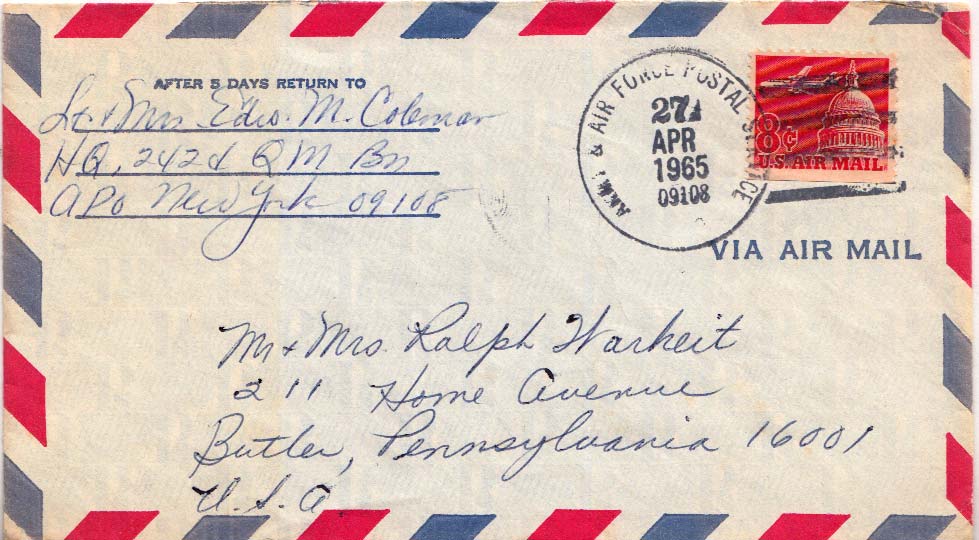 AFTER 5 DAYS RETURN TO
Lt. & Mrs Edw. M. Coleman
HQ, 242d QM Bn
APO New York 09108
ARMY & AIR FORCE POSTAL SERVICE
27
APR
1965
09108
8¢
U.S. AIR MAIL
VIA AIR MAIL
Mr & Mrs. Ralph Warheit
211 Home Avenue
Butler, Pennsylvania 16001
U.S.A